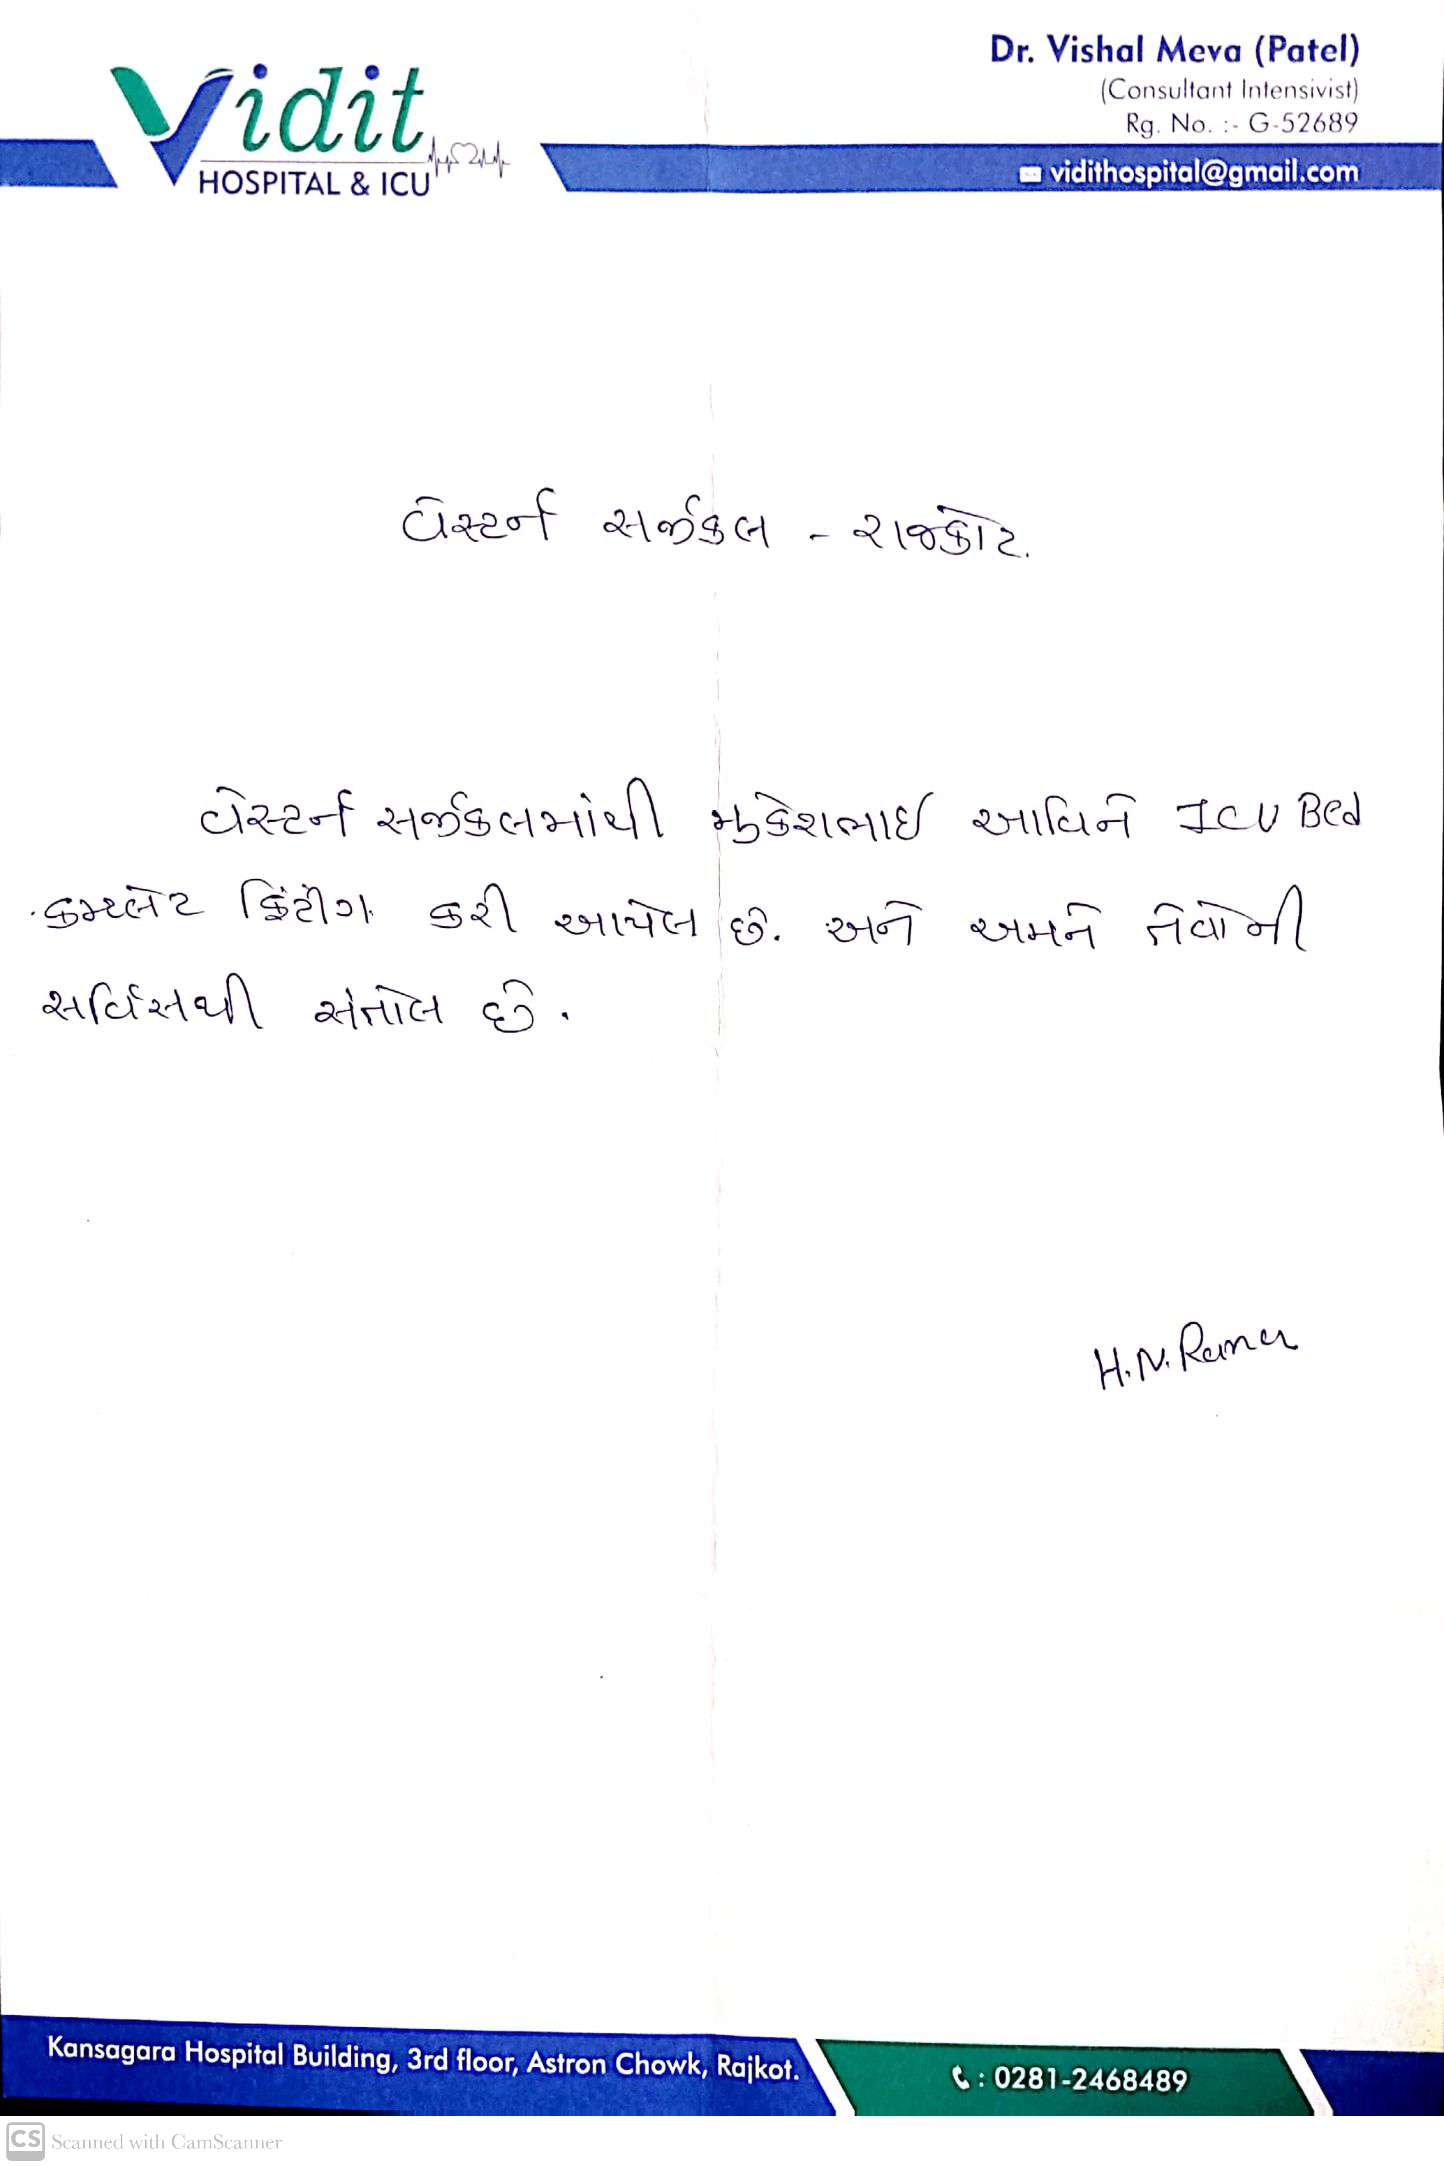 Vidit
HOSPITAL & ICU
Dr. Vishal Meva (Patel)
(Consultant Intensivist)
Rg. No. :- G-52689
vidithospital@gmail.com
વેસ્ટર્ન સર્જીકલ - રાજકોટ.
વેસ્ટર્ન સર્જીકલમાંથી મુકેશભાઇ આવિને ICU Bed
કમ્પ્લેટ ફિટીંગ કરી આપેલ છે. અને અમને તેવોની
સર્વિસથી સંતોષ છે.
H.N. Rana
Kansagara Hospital Building, 3rd floor, Astron Chowk, Rajkot.
: 0281-2468489
CS Scanned with CamScanner